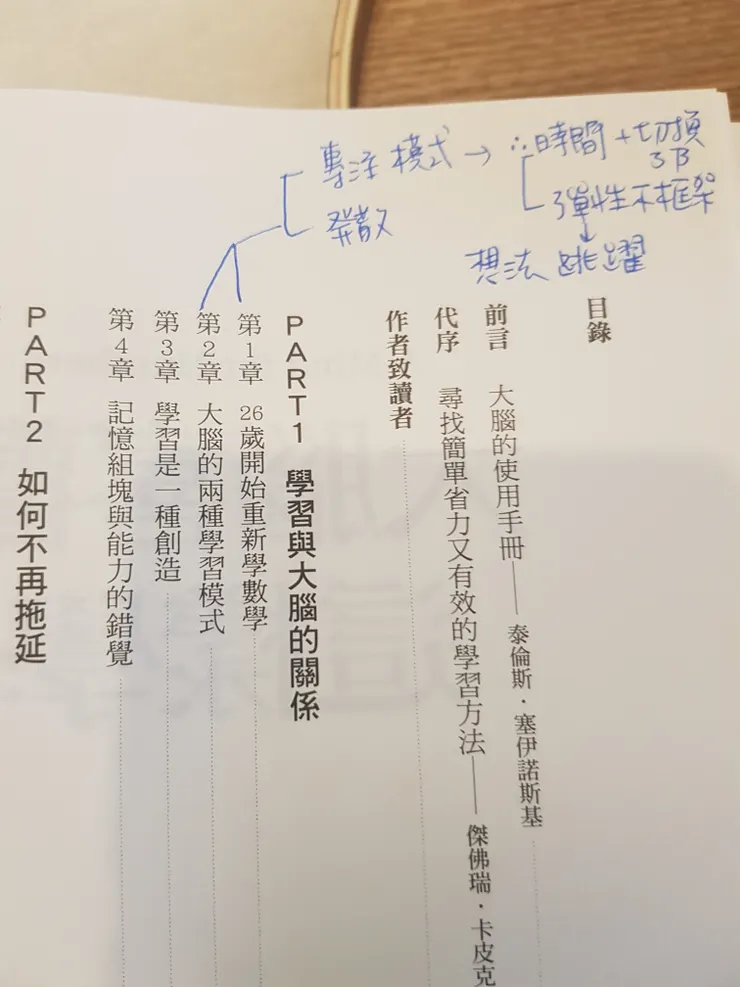 專注模式 → ∴時間+切換
3B
發散
彈性不框架
↓
想法 跳躍
目錄
前言 大腦的使用手冊——泰倫斯・塞伊諾斯基
代序 尋找簡單省力又有效的學習方法——傑佛瑞・卡皮克
作者致讀者
PART1 學習與大腦的關係
第1章 26歲開始重新學數學
第2章 大腦的兩種學習模式
第3章 學習是一種創造
第4章 記憶組塊與能力的錯覺
PART2 如何不再拖延